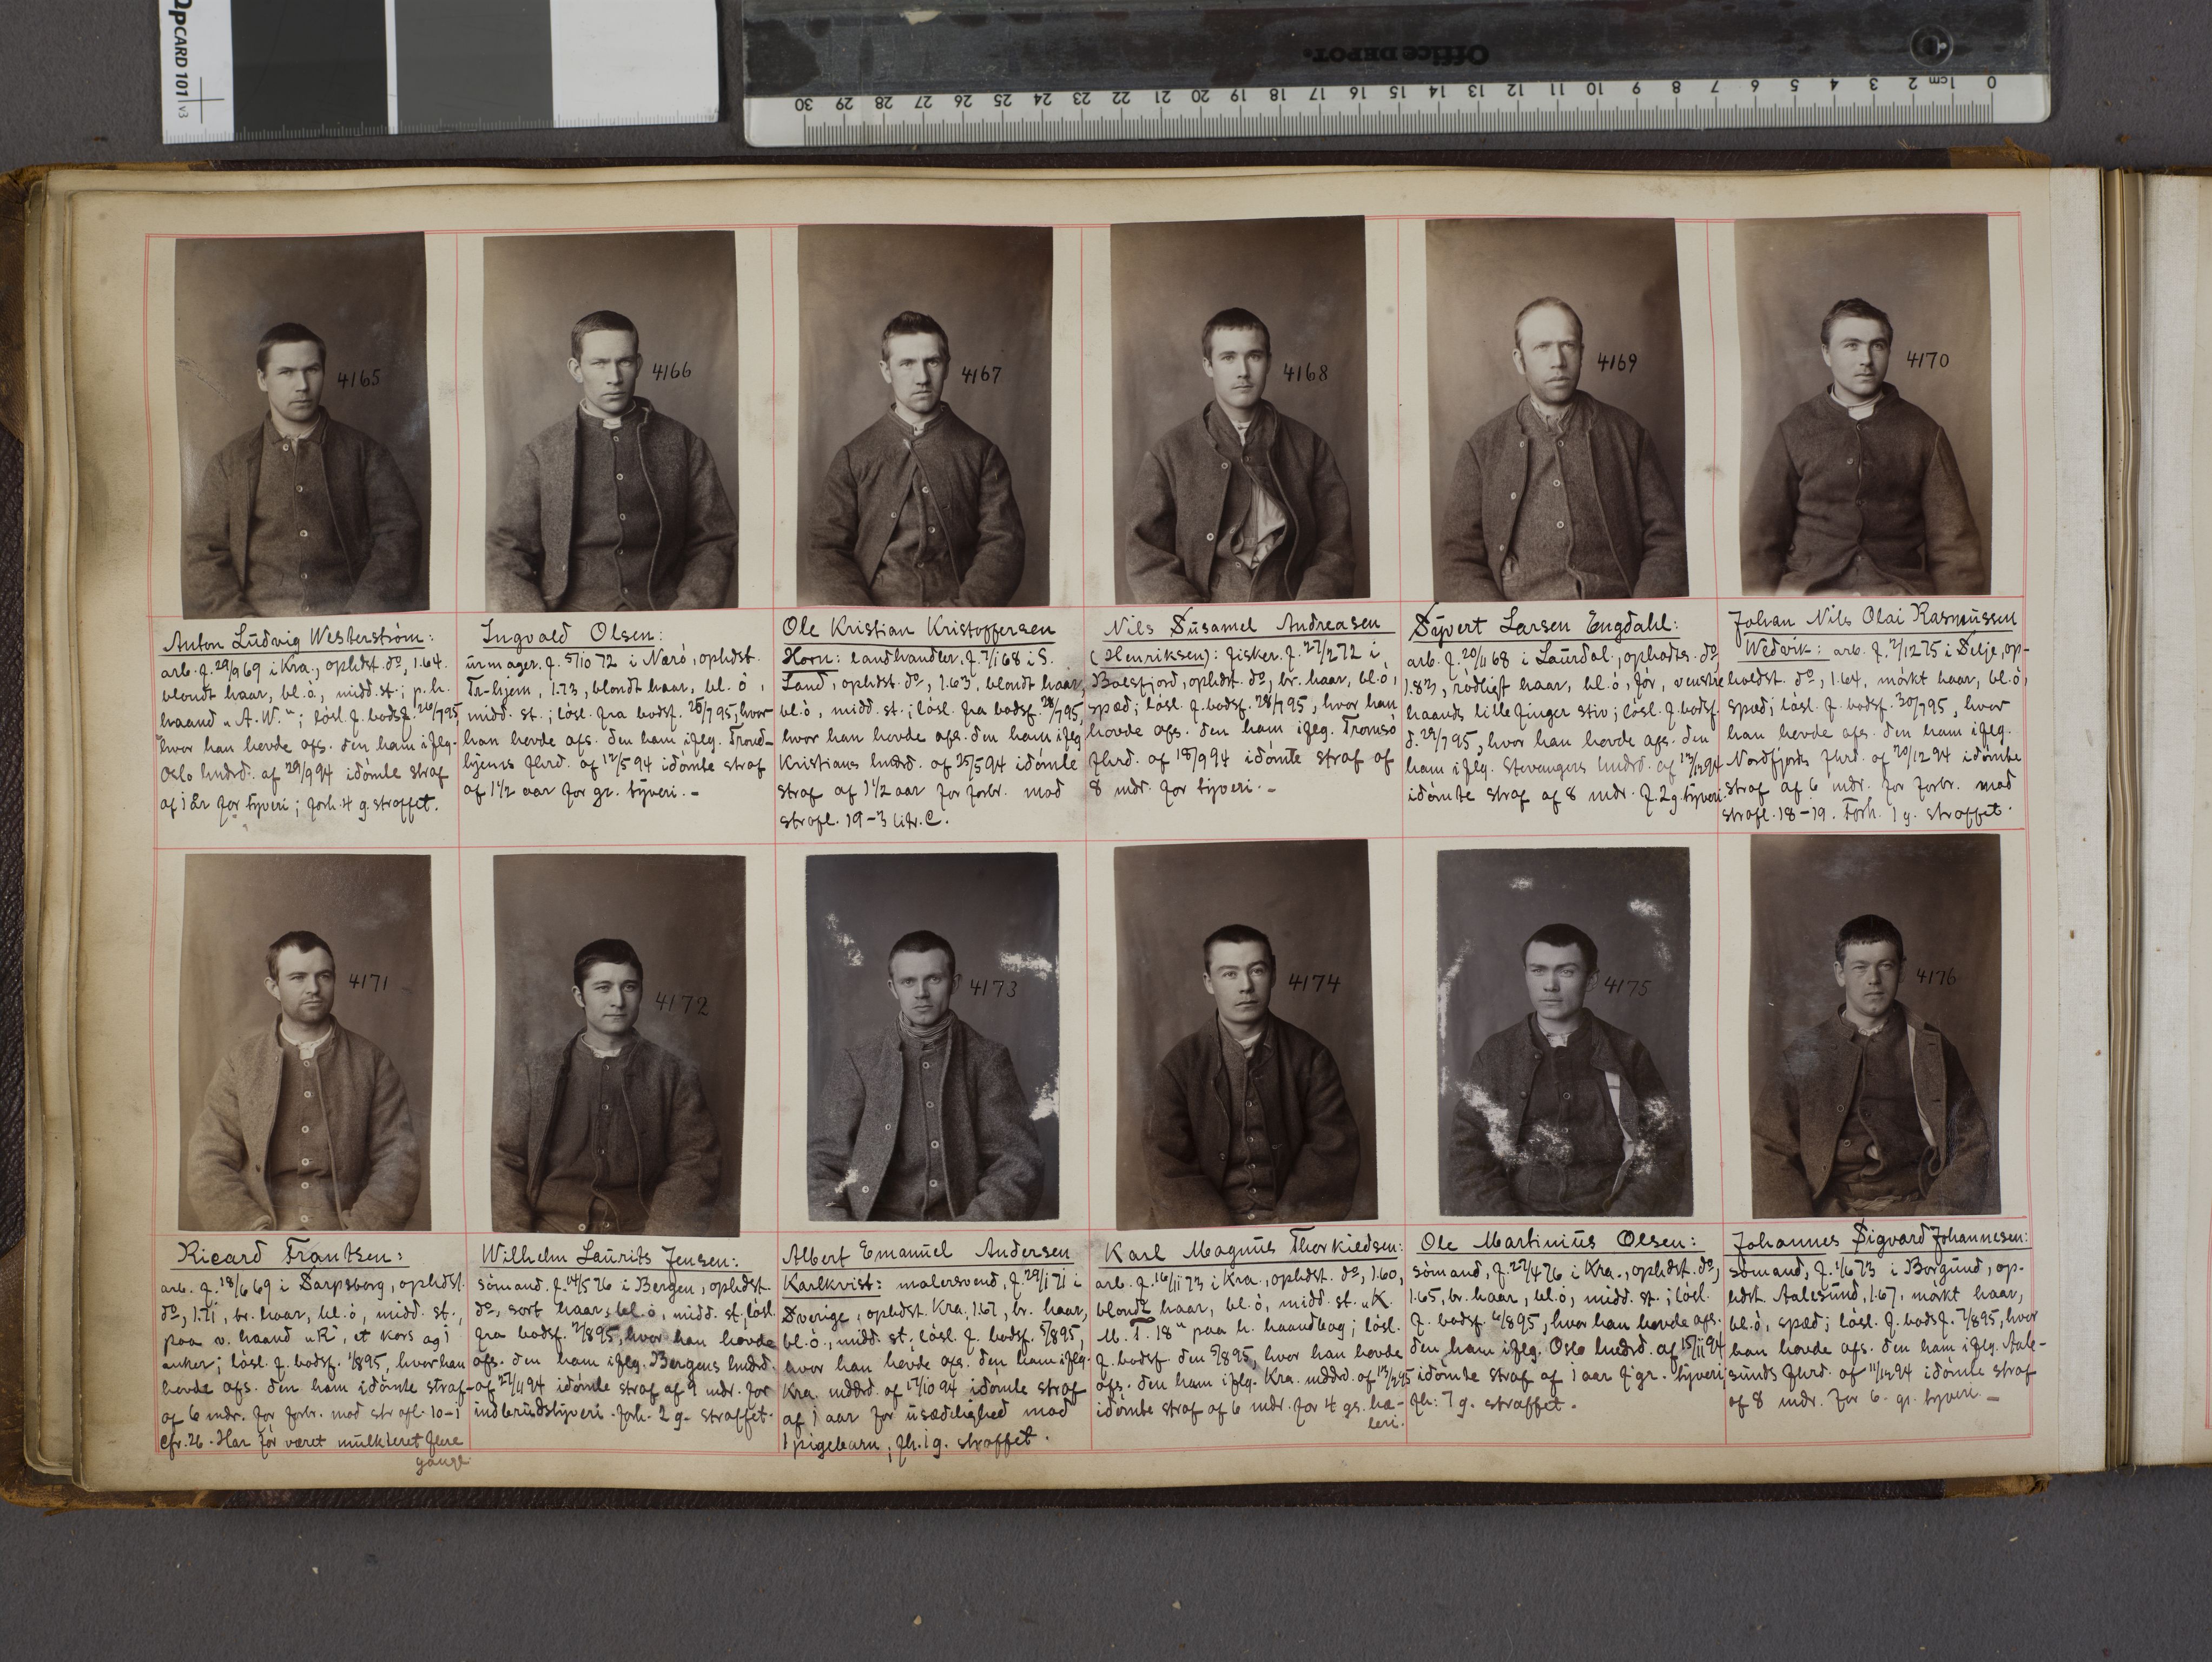 QPCARD 101 v3
Office DEPOT.
0 1cm 2 3 4 5 6 7 8 9 10 11 12 13 14 15 16 17 18 19 20 21 22 23 24 25 26 27 28 29 30
4165
4166
4167
4168
4169
4170
Anton Ludvig Westerström:
arb. f. 29/9 69 i Kra., ophdst. do, 1.64.
blondt haar, bl. ö, midd. st.; p. h.
haand „A. W."; lösl. f. bodsf. 26/7 95,
hvor han hevde afs. den ham iflg.
Oslo lmdrd. af 29/9 94 idömte straf
af 1 år for tyveri; forh. 4 g. straffet.
Ingvald Olsen:
urmager. f. 5/10 72 i Nærö, ophdst.
Tr-hjem, 1.73, blondt haar, bl. ö,
midd. st.; lösl. fra bodsf. 28/7 95, hvor
han hevde afs. den ham iflg. Trond-
hjems fhrd. af 12/5 94 idömte straf
af 1½ aar for gr. tyveri. -
Ole Kristian Kristoffersen
Horn: landhandler. f. 7/1 68 i S.
Land, ophdst. do, 1.63, blondt haar,
bl. ö, midd. st.; lösl. fra bodsf. 28/7 95,
hvor han hevde afs. den ham iflg
Kristians lmdrd. af 25/5 94 idömte
straf af 1½ aar for forbr. mod
strafl. 19-3 litr. C.
Nils Susamel Andreasen
(Henriksen): fisker. f. 27/2 72 i
Balsfjord, ophdst. do, br. haar, bl. ö,
spæd; lösl. f. bodsf. 28/7 95, hvor han
hevde afs. den ham iflg. Tromsö
fhrd. af 18/9 94 idömte straf af
8 mdr. for tyveri. -
Syvert Larsen Engdahl:
arb. f. 20/11 68 i Laurdal, opholdts. do
rödligt haar, bl. ö, för, venstre
haands lille finger stiv; lösl. f. bodsf.
d. 29/7 95, hvor han hevde afs. den
ham iflg. Stavangers lmdrd. af 13/12 94
idömte straf af 8 mdr. f. 2 g. tyveri.
Johan Nils Olai Rasmussen
Wedvik: arb. f. 2/12 75 i Selje, op-
holdst. do, 1.64, mörkt haar, bl. ö,
spæd; lösl. f. bodsf. 30/7 95, hvor
han hevde afs. den ham iflg.
Nordfjords fhrd. af 20/12 94 idömte
straf af 6 mdr. for forbr. mod
strafl. 18-19. Forh. 1 g. straffet.
4171
4172
4173
4174
4175
4176
Ricard Frantsen:
arb. f. 18/6 69 i Sarpsborg, ophdst.
do, 1.71, br. haar, bl. ö, midd. st.,
paa v. haand „R", et kors og 1
anker; lösl. f. bodsf. 1/8 95, hvor han
hevde afs. den ham idömte straf
af 6 mdr. for forbr. mod strafl. 10-1
cfr. 26. Har för været mulkteret flere
gange.
Wilhelm Laurits Jensen:
sömand. f. 14/5 76 i Bergen, ophdst.
do, sort haar, bl. ö, midd. st, lösl.
fra bodsf. 2/8 95, hvor han hevde
afs. den ham iflg. Bergens lmdrd.
af 27/11 94 idömte straf af 9 mdr. for
indbrudstyveri. forh. 2 g. straffet.
Albert Emanuel Andersen
Karlkvist: malersvend, f. 29/1 71 i
Sverige, ophdst. Kra. 1.67, br. haar,
bl. ö., midd. st, lösl. f. bodsf. 5/8 95,
hvor han hevde afs. den ham iflg.
Kra. mddrd. af 17/10 94 idömte straf
af 1 aar for usædelighed mod
1 pigebarn; fh. 1 g. straffet.
Karl Magnus Thorkildsen:
arb. f. 16/11 73 i Kra., ophdst. do, 1.60,
blondt haar, bl. ö, midd. st. „K.
M. T. 18" paa h. haandbag; lösl.
f. bodsf. den 5/8 95, hvor han hevde
afs. den ham iflg. Kra. mddrd. af 13/2 95
idömte straf af 6 mdr. for 4 gs. hæ-
leri.
Ole Martinius Olsen:
sömand, f. 27/4 76 i Kra., ophdst. do,
1.65, br. haar, bl. ö, midd. st.; lösl.
f. bodsf. 6/8 95, hvor han hevde afs.
den ham iflg. Oslo lmdrd. af 15/11 94
idömte straf af 1 aar f. gr. tyveri;
fh: 7 g. straffet.
Johannes Sigvard Johannesen:
sömand, f. 1/6 73 i Borgund, op-
hdst. Aalesund, 1.67, mörkt haar,
bl. ö, spæd; lösl. f. bodsf. 7/8 95, hvor
han hevde afs. den ham iflg. Aale-
sunds fhrd. af 11/12 94 idömte straf
af 8 mdr. for 6. gr. tyveri. -